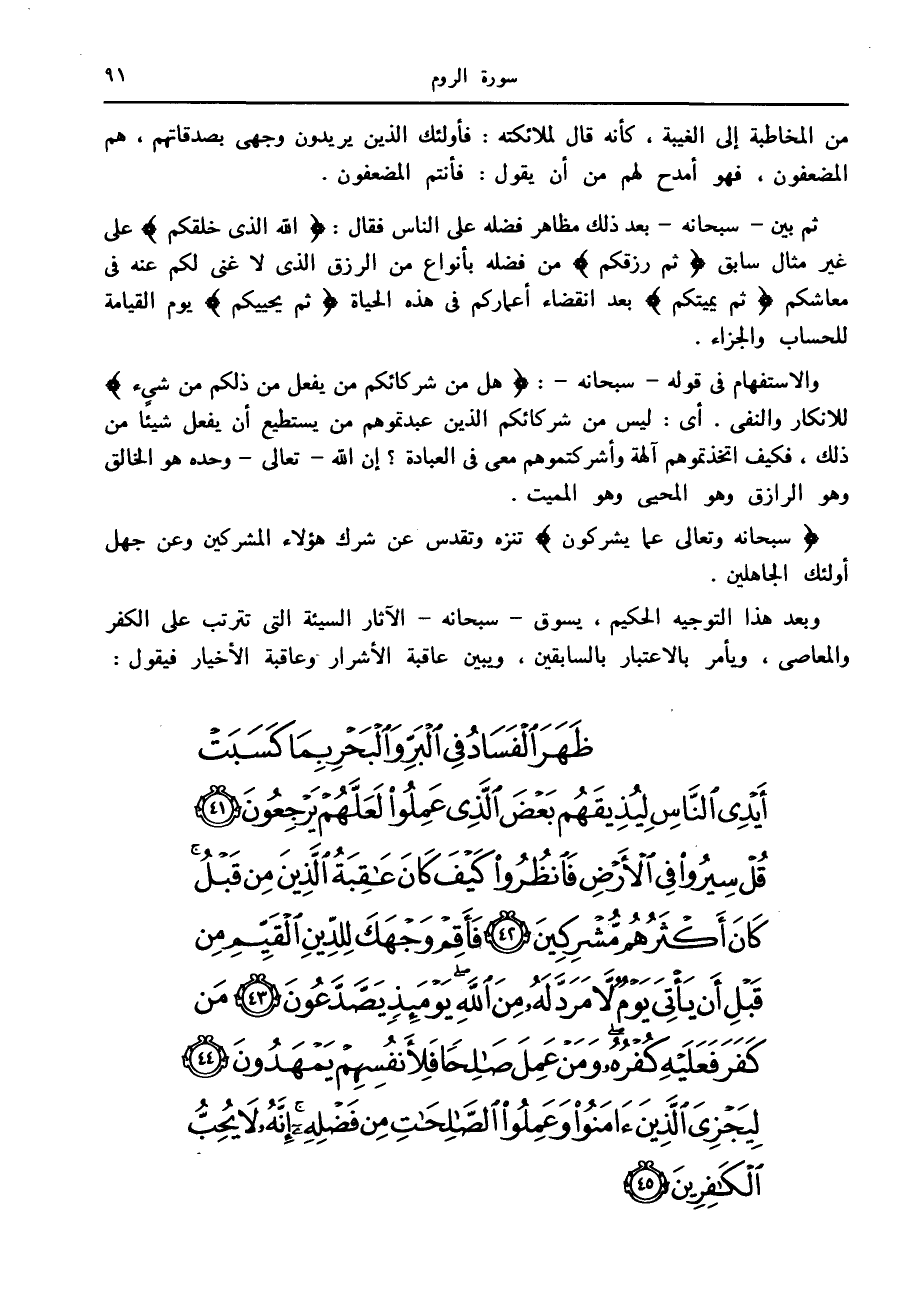 سورة الروم ٩١
من المخاطبة إلى الغيبة ، كأنه قال لملائكته : فأولئك الذين يريدون وجهى بصدقاتهم ، هم
المضعفون ، فهو أمدح لهم من أن يقول : فأنتم المضعفون .
ثم بين – سبحانه – بعد ذلك مظاهر فضله على الناس فقال : ﴿ الله الذى خلقكم ﴾ على
غير مثال سابق ﴿ ثم رزقكم ﴾ من فضله بأنواع من الرزق الذى لا غنى لكم عنه فى
معاشكم ﴿ ثم يميتكم ﴾ بعد انقضاء أعماركم فى هذه الحياة ﴿ ثم يحييكم ﴾ يوم القيامة
للحساب والجزاء .
والاستفهام فى قوله – سبحانه – : ﴿ هل من شركائكم من يفعل من ذلكم من شيءٍ ﴾
للانكار والنفى . أى : ليس من شركائكم الذين عبدتموهم من يستطيع أن يفعل شيئًا من
ذلك ، فكيف اتخذتموهم آلهة وأشركتموهم معى فى العبادة ؟ إن الله – تعالى – وحده هو الخالق
وهو الرازق وهو المحيى وهو المميت .
﴿ سبحانه وتعالى عما يشركون ﴾ تنزه وتقدس عن شرك هؤلاء المشركين وعن جهل
أولئك الجاهلين .
وبعد هذا التوجيه الحكيم ، يسوق – سبحانه – الآثار السيئة التى تترتب على الكفر
والمعاصى ، ويأمر بالاعتبار بالسابقين ، ويبين عاقبة الأشرار وعاقبة الأخيار فيقول :
ظَهَرَ ٱلْفَسَادُ فِى ٱلْبَرِّ وَٱلْبَحْرِ بِمَا كَسَبَتْ
أَيْدِى ٱلنَّاسِ لِيُذِيقَهُم بَعْضَ ٱلَّذِى عَمِلُوا۟ لَعَلَّهُمْ يَرْجِعُونَ ٤١
قُلْ سِيرُوا۟ فِى ٱلْأَرْضِ فَٱنظُرُوا۟ كَيْفَ كَانَ عَـٰقِبَةُ ٱلَّذِينَ مِن قَبْلُ ۚ
كَانَ أَكْثَرُهُم مُّشْرِكِينَ ٤٢ فَأَقِمْ وَجْهَكَ لِلدِّينِ ٱلْقَيِّمِ مِن
قَبْلِ أَن يَأْتِىَ يَوْمٌ لَّا مَرَدَّ لَهُۥ مِنَ ٱللَّهِ ۖ يَوْمَئِذٍ يَصَّدَّعُونَ ٤٣ مَن
كَفَرَ فَعَلَيْهِ كُفْرُهُۥ ۖ وَمَنْ عَمِلَ صَـٰلِحًا فَلِأَنفُسِهِمْ يَمْهَدُونَ ٤٤
لِيَجْزِىَ ٱلَّذِينَ ءَامَنُوا۟ وَعَمِلُوا۟ ٱلصَّـٰلِحَـٰتِ مِن فَضْلِهِۦٓ ۚ إِنَّهُۥ لَا يُحِبُّ
ٱلْكَـٰفِرِينَ ٤٥